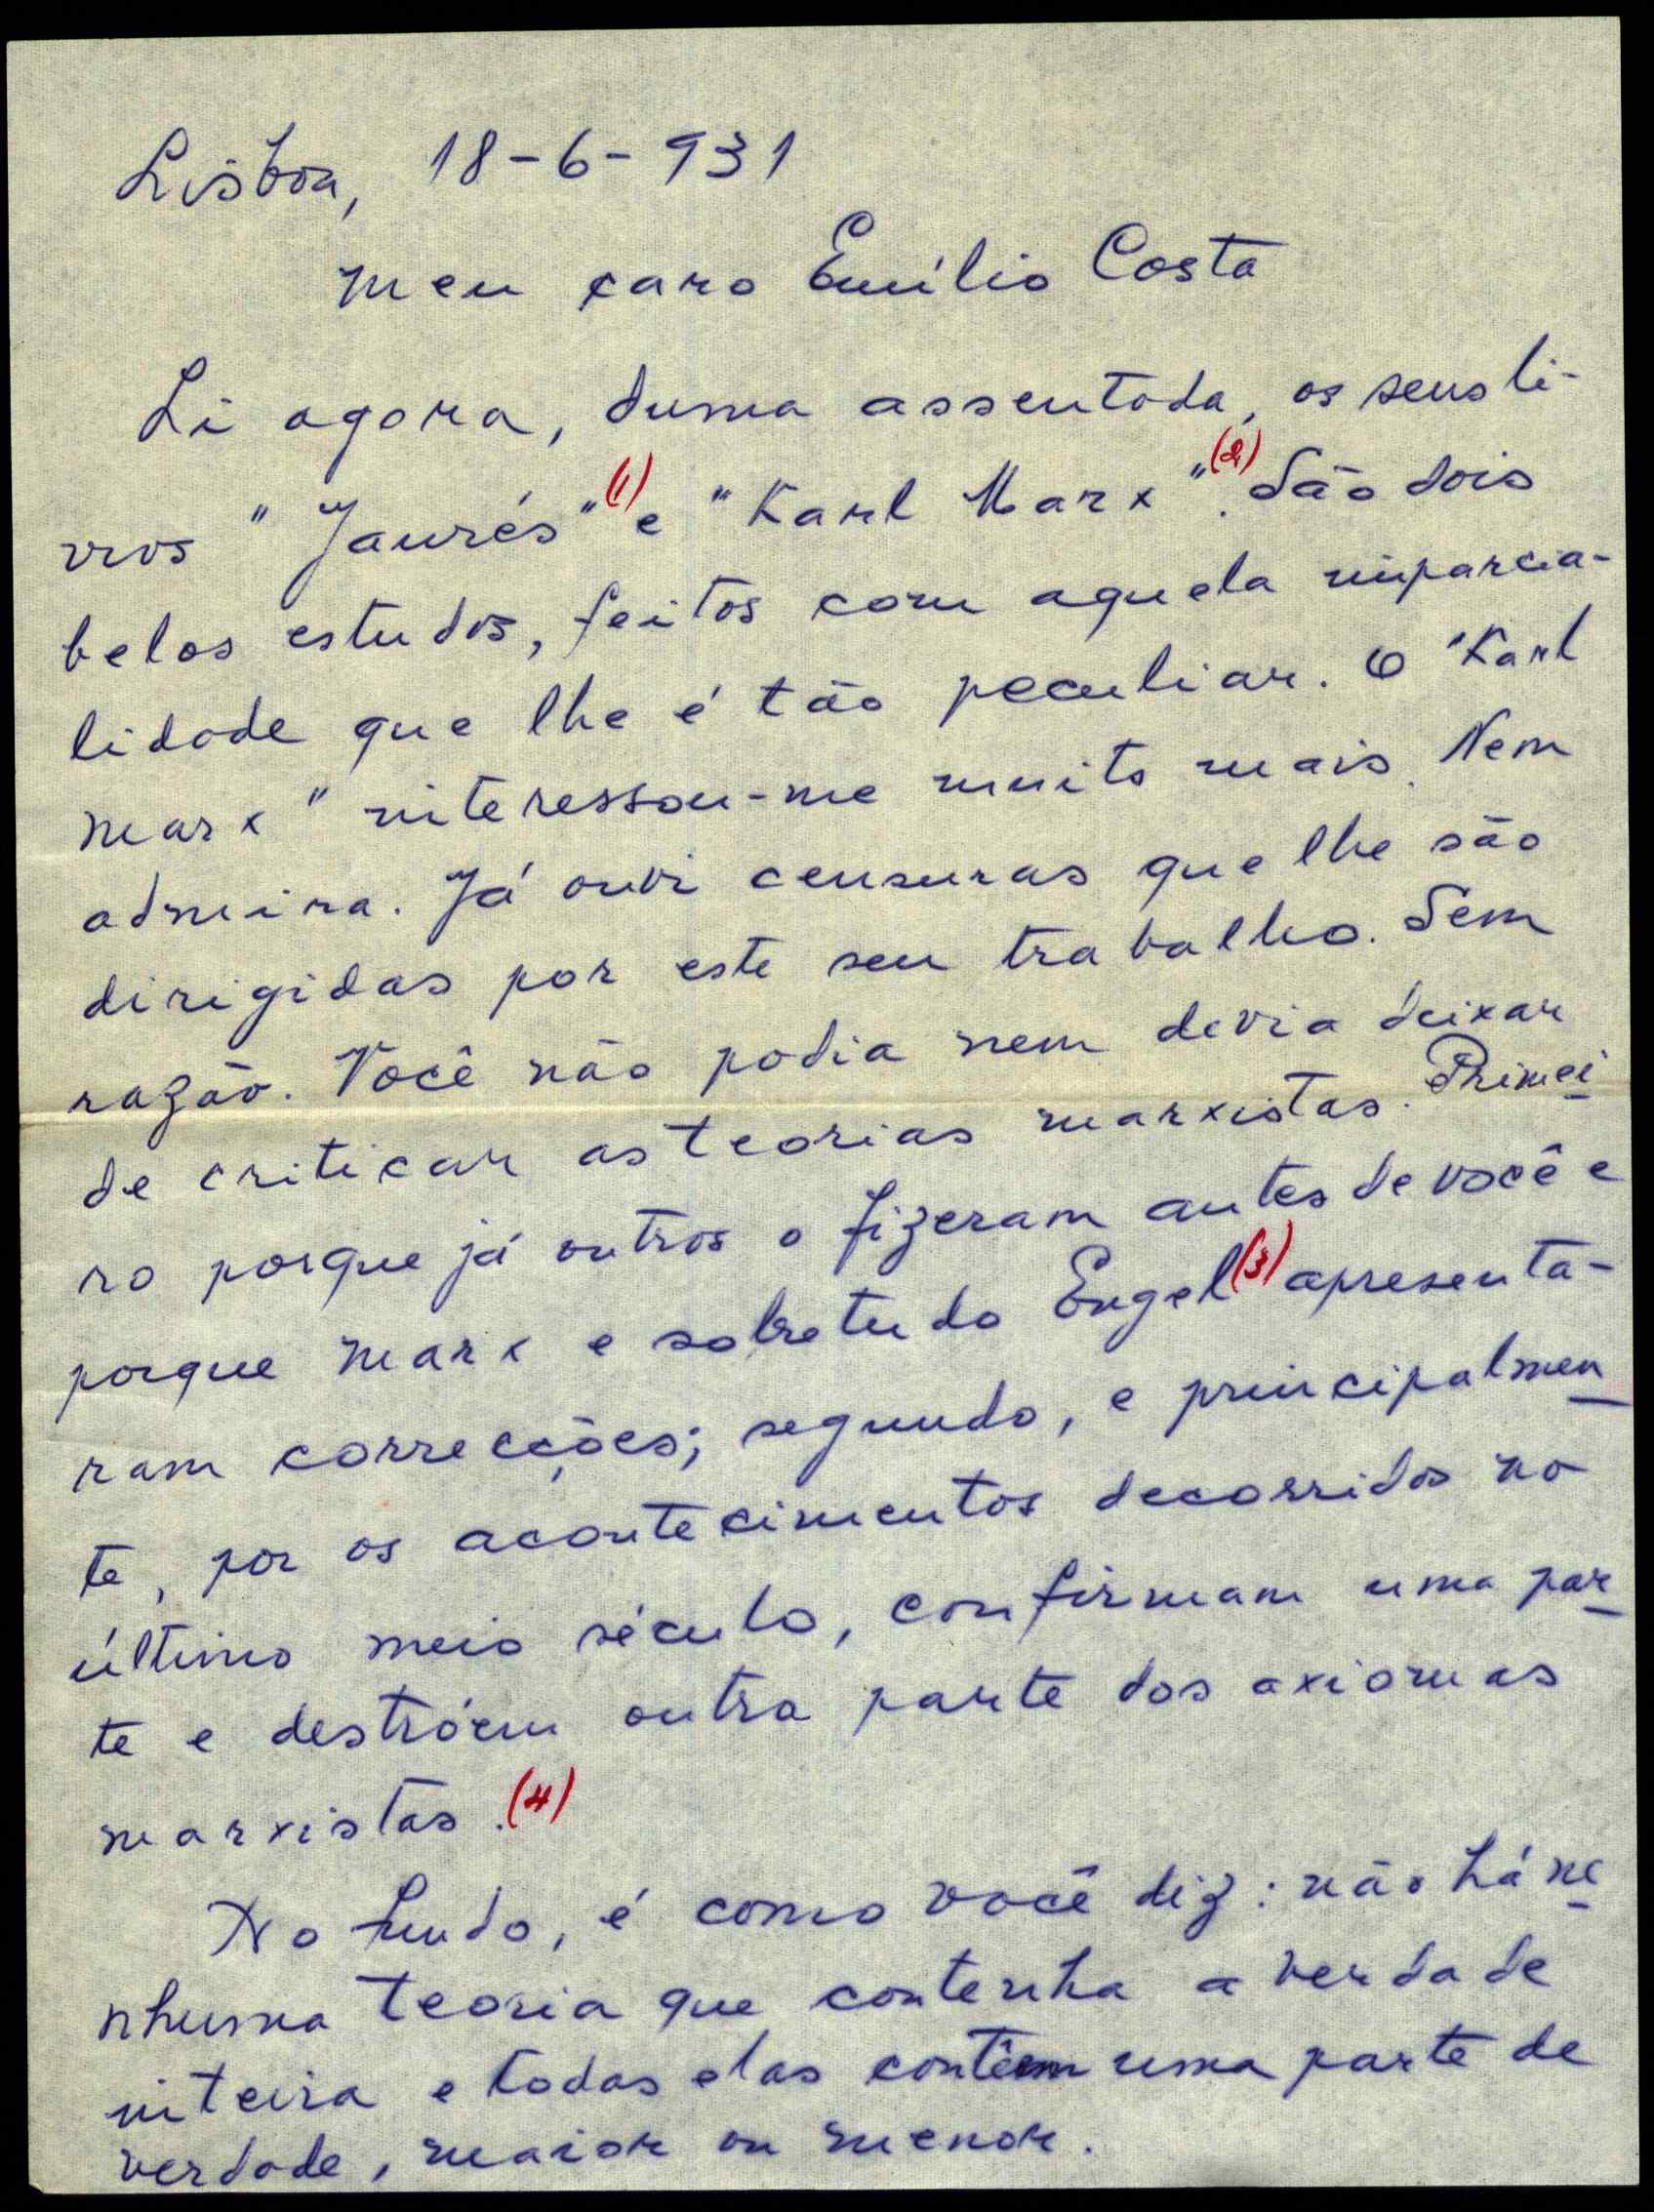 Lisboa, 18-6-931
Meu caro Emílio Costa
Li agora, duma assentada, os seus li-
vros "Jaurés"(1) e "Karl Marx"(2). São dois
belos estudos, feitos com aquela imparcia-
lidade que lhe é tão peculiar. O "Karl
Marx" interessou-me muito mais. Nem
admira. Já ouvi censuras que lhe são
dirigidas por este seu trabalho. Sem
razão. Você não podia nem devia deixar
de criticar as teorias marxistas. Primei
ro porque já outros o fizeram antes de você e
porque Marx e sobretudo Engel(3) apresenta-
ram correcções; segundo, e principalmen
te, por os acontecimentos decorridos no
último meio século, confirmam uma par
te e destróem outra parte dos axiomas
marxistas.(4)
No fundo, é como você diz: não há ne
nhuma teoria que contenha a verdade
inteira e todas elas contêem uma parte de
verdade, maior ou menor.